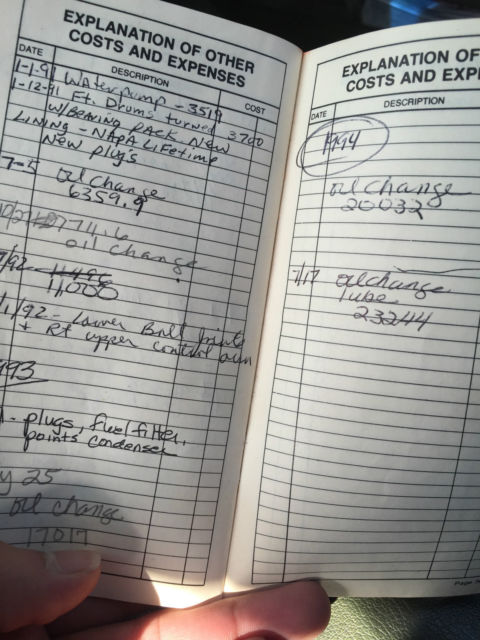 EXPLANATION OF OTHER
COSTS AND EXPENSES
DATE DESCRIPTION COST
1-1-91 Water pump - 3519
1-12-91 Ft. Drums turned 3700
W/BEARING PACK NEW
LINING - NAPA LIFETIME
New plug's
7-5 oil Change
6359.9
7711.6
oil Change
/92
11,000
/1/92 - Lower Ball Joints
+ Rt upper control arm
993
- plugs, fuel filter,
points condenser
y 25
oil change
17017
EXPLANATION OF
COSTS AND EXPE
DATE DESCRIPTION
1994
oil Change
20032
7/17 oil change
lube
23244